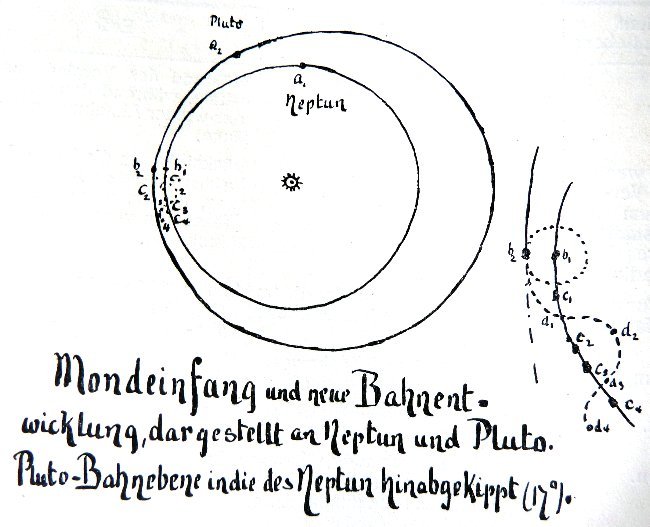 Pluto
a₂
a₁
Neptun
b₂ b₁
C₂
C₃
C₄
4
b₂ b₁
c₁
d₁ d₂
c₂
c₃
d₃
c₄
d₄
Mondeinfang und neue Bahnent-
wicklung, dargestellt an Neptun und Pluto.
Pluto-Bahnebene in die des Neptun hinabgekippt (17°).